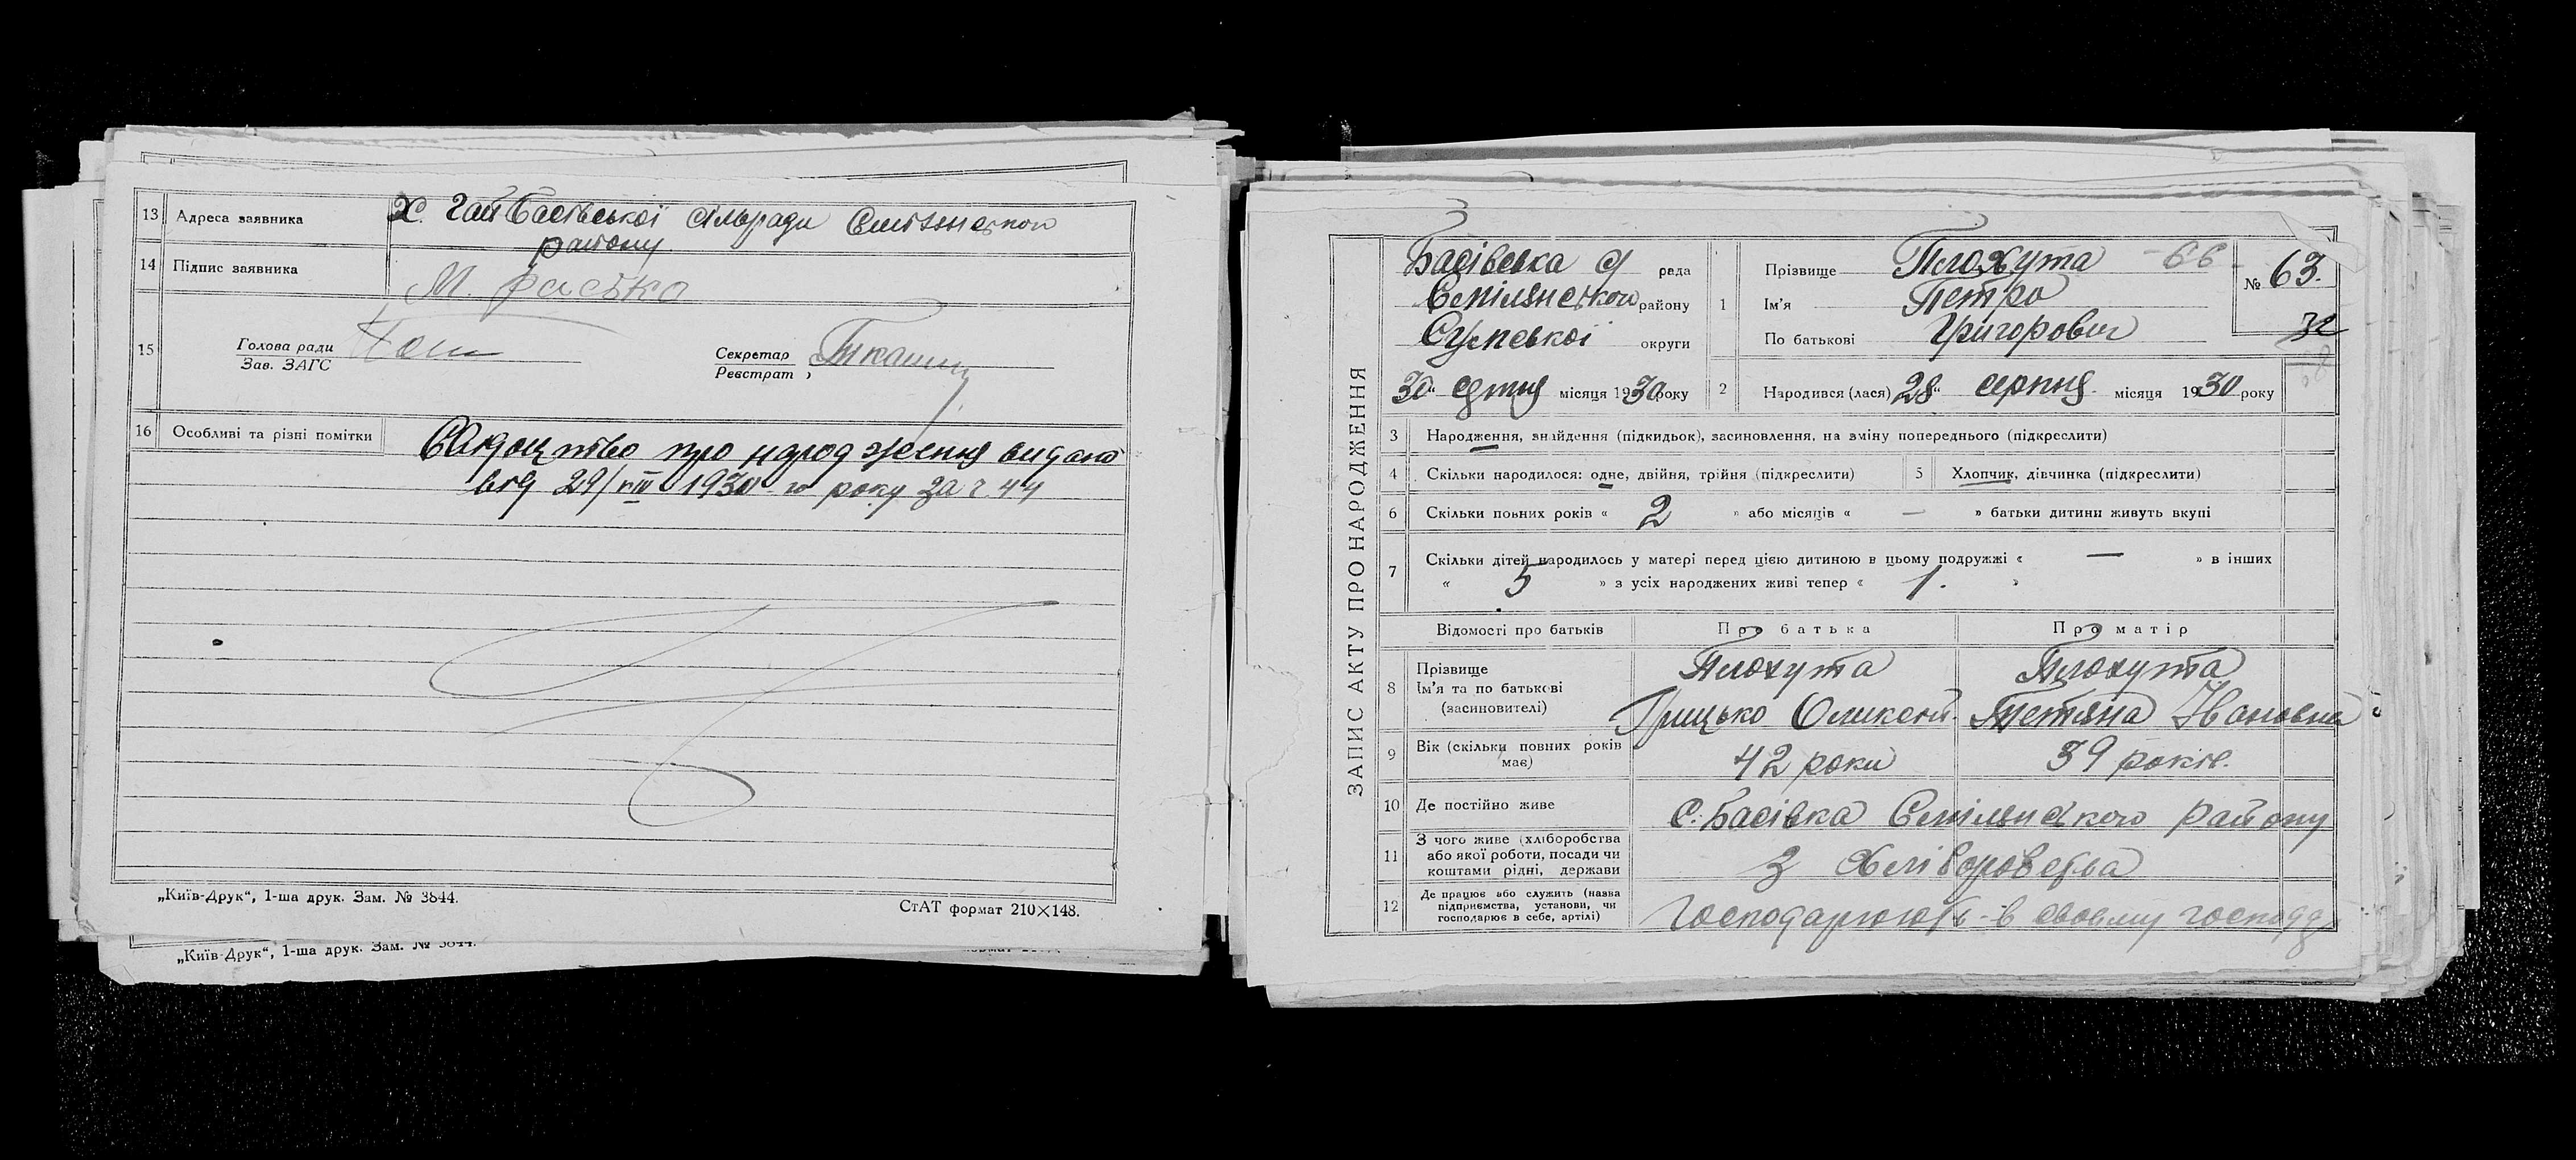 13 Адреса заявника Х. Гай Басівської сільради Смілянського
району
14 Підпис заявника М. Фасько
15 Голова ради
Зав. ЗАГС
Секретар
Реєстрат
16 Особливі та різні помітки Свидоцтво про народження видано
від 29/VIII 1930-го року за ч. 44
„Київ-Друк“, 1-ша друк. Зам. № 3844.
СтАТ формат 210×148.
„Київ-Друк“, 1-ша друк. Зам. № 3844.
ЗАПИС АКТУ ПРО НАРОДЖЕННЯ
Басівська с рада
Смілянського району
Сумської округи
30 " місяця 1930 року
1 Прізвище Плохута - 66
Ім'я Петро
По батькові Григорович
№ 63.
32
2 Народився (лася) 28 " серпня місяця 1930 року
3 Народження, знайдення (підкидьок), засиновлення, на зміну попереднього (підкреслити)
4 Скільки народилося: одне, двійня, трійня (підкреслити) 5 Хлопчик, дівчинка (підкреслити)
6 Скільки повних років « 2 » або місяців « — » батьки дитини живуть вкупі
7 Скільки дітей народилось у матері перед цією дитиною в цьому подружжі « — » в інших
« 5 » з усіх народжених живі тепер « 1. »
Відомості про батьків Про батька Про матір
8 Прізвище Плохута Плохута
Ім'я та по батькові Грицько Олексій. Тетяна Івановна
(засновителі)
9 Вік (скільки повних років має) 42 роки 39 років.
10 Де постійно живе С. Басівка Смілянського району
11 З чого живе (хліборобства
або якої роботи, посади чи
коштами рідні, держави З хліборобства
12 Де працює або служить (назва
підприємства, установи, чи
господарює в себе, артілі) Господарюють в своєму господ